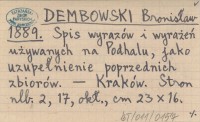 DEMBOWSKI Bronisław
1889. Spis wyrazów i wyrażeń
używanych na Podhalu, jako
uzupełnienie poprzednich
zbiorów. — Kraków. Stron
nlb. 2, 17, okł., cm 23 x 16.